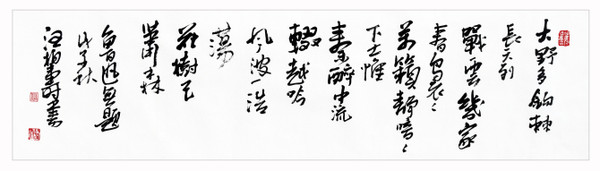 大野多鉤棘
長天列
戰雲幾家
春裊〻
萬籟靜愔〻
下土惟
秦醉中流
輟越吟
風波一浩
蕩
花樹已
蕭森
魯迅無題
戊子秋
壽書